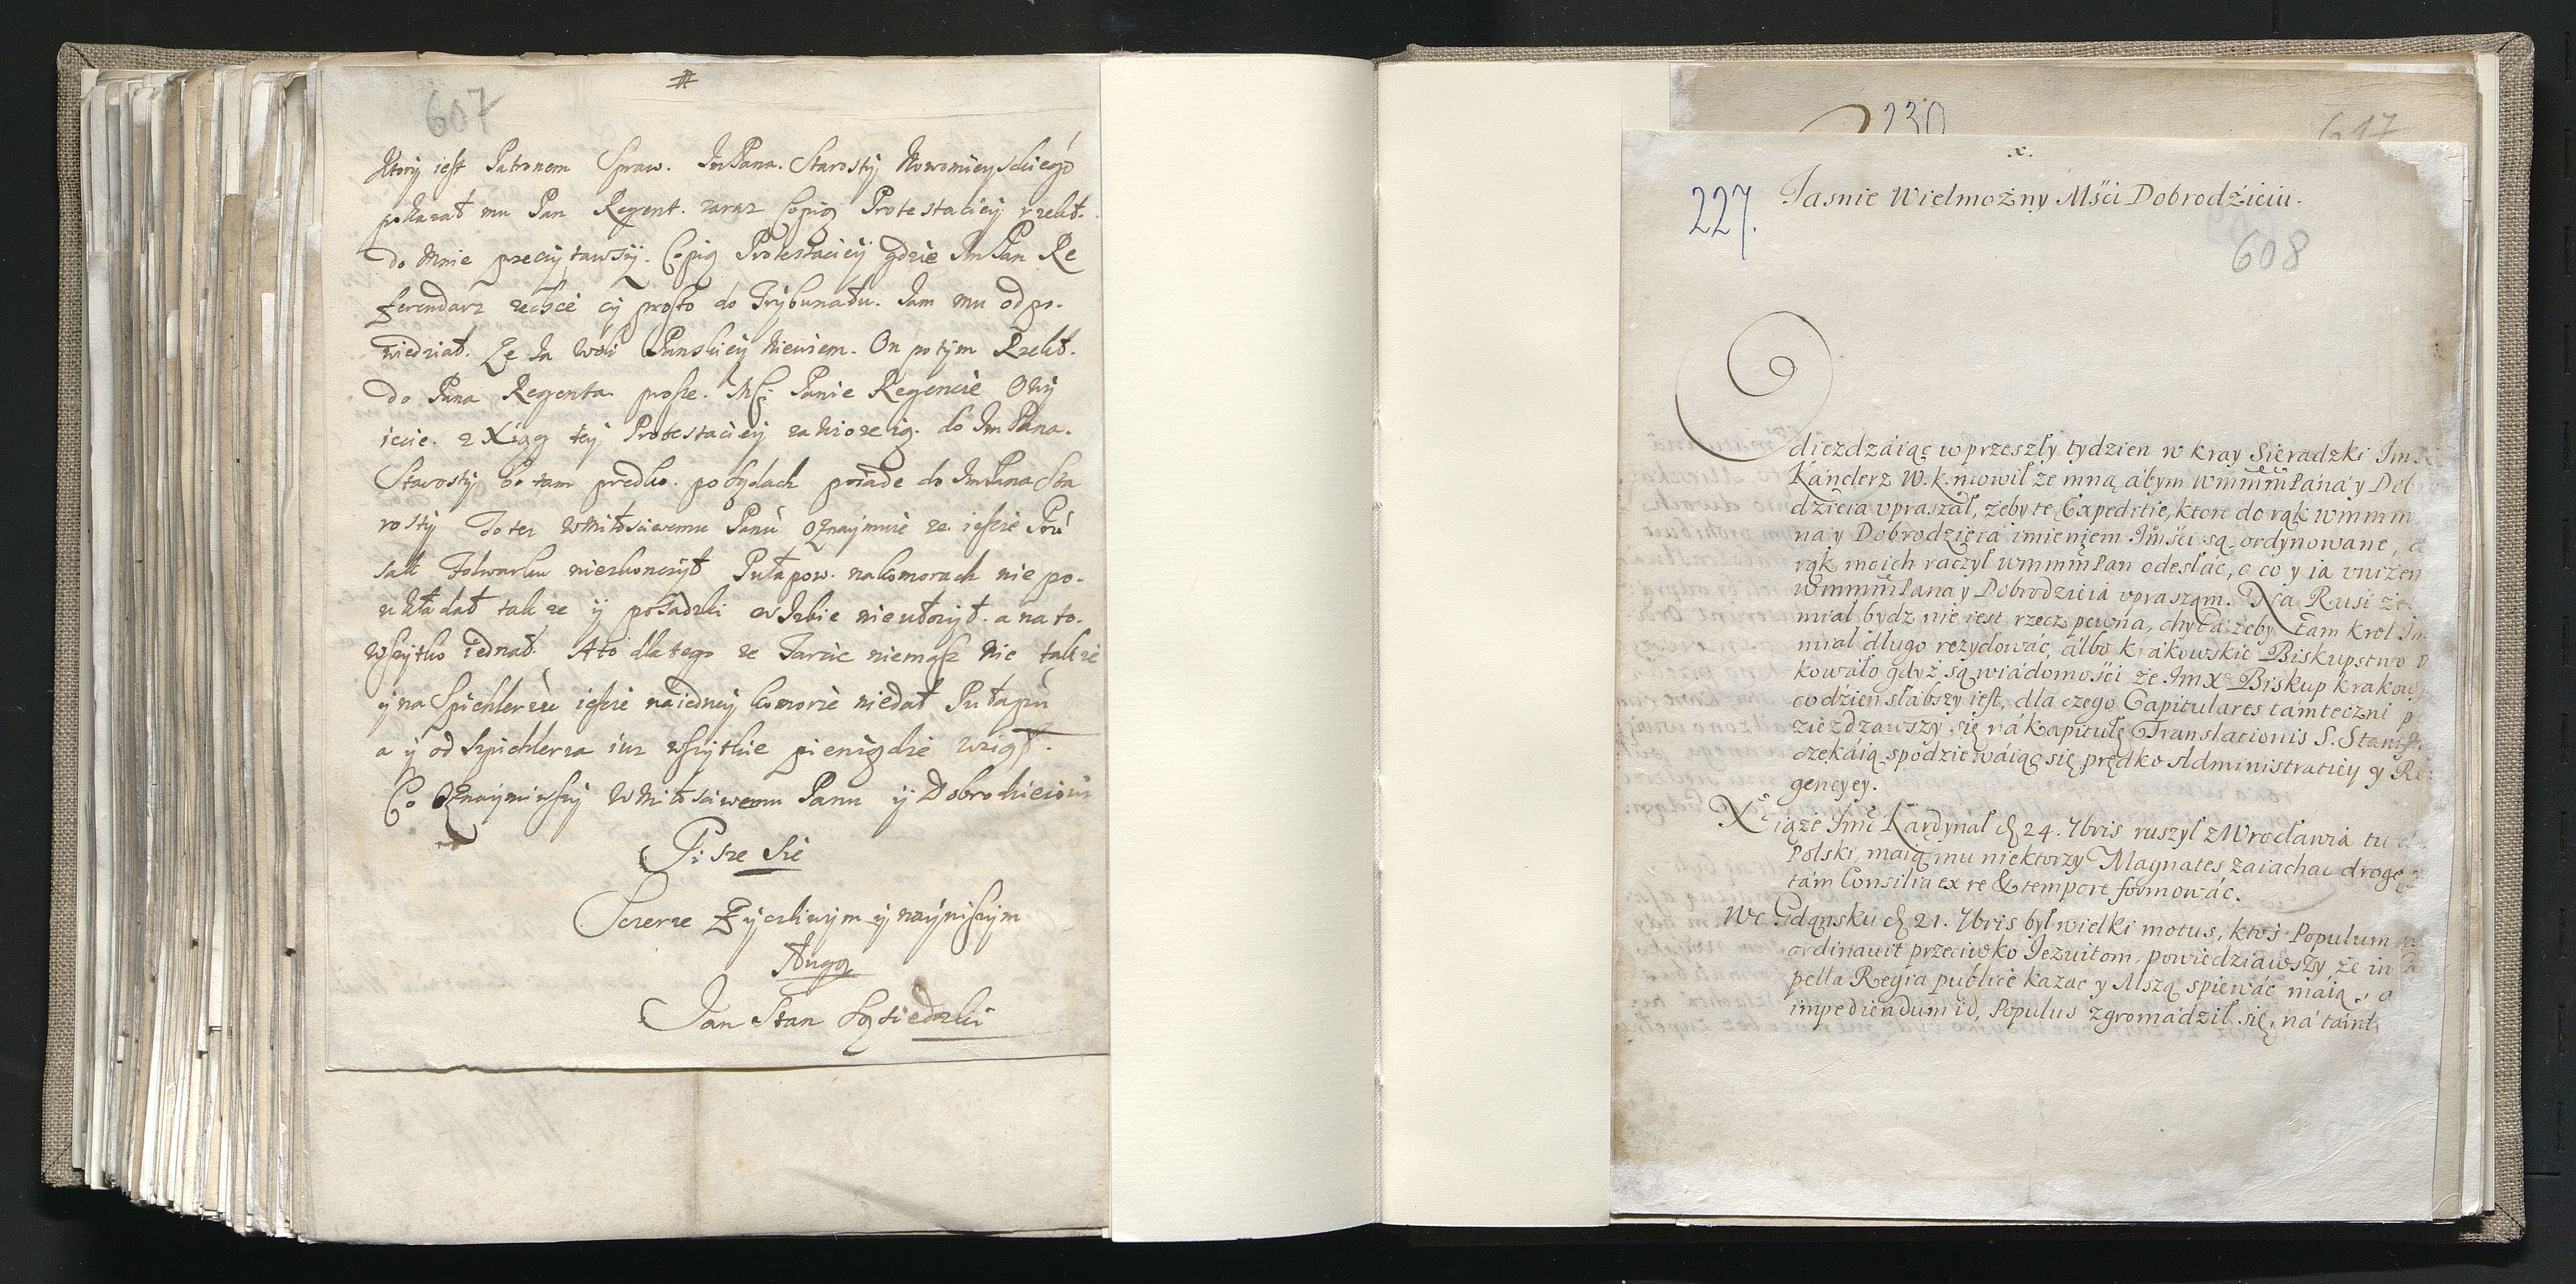 607
Ktory iest Patronem Spraw. ImPana. Starosty Nowomieyskiego
pokazał mu Pan Regent. zaraz Copią Protestaciey rzekł.
do Mnie przeczytawszy. Copią Protestaciey gdzie ImPan Re
ferendarz zechce cy prosto do Trybunału. Jam mu odpo-
wiedział. Ze Ja Woli Panskiey Niewiem. On potym Rzekł.
do Pana Regenta. prosze. Mći Panie Regencie
iecie. z Xiąg tey Protestaciey zawioze ią. do ImPana.
Starosty bo tam predko. po Sądach poiade do ImPana Sta
rosty To tez WMiłosciwemu Panu Oznaymuie ze ieszcze
Folwarku nieskonczył Pułapow. nakomorach nie po-
układał takze y posadzki w Izbie nieułozył. a na to.
Wszytko iednał. A to dla tego ze Tarcic niemasz Nic takze
y na Spichlerzu ieszcze naiedney komorze niedał Pułapu
a y od Szpichlerza iuz wszytkie pieniądze wziął.
Co Oznaymiwszy WMiłosciwemu Panu y Dobrodzieiowi
Pisze sie
Szczerze Zyczliwym y nayniszym
Sługą
Jan Stan
230
617
x.
227.
Jasnie Wielmożny Mści Dobrodźieiu.
608
Odieżdzáiąc w przeszły tydzien w kray Sieradzki Im
Kanclerz W. k. mowił że mną ábym wmmmPána y Dob
dźieia vpraszał, żeby te Expeditie, ktore do rąk wmmm
na y Dobrodzieia imieniem Jmści są ordynowane,
rąk moich raczył wmmmPan odesłác, o co y ia vnizen
wmmmPana y Dobrodzieiá vpraszam. Na Rusi że
miał bydz nie iest rzecz pewna, chyba żeby tam krol
miał długo rezydowác, álbo krákowskie Biskupstwo
kowáło gdyż są wiádomości że JmX Biskup krakow
codzien słabszy iest, dla czego Capitulares támteczni p
zieżdzawszy się ná Kapitułę Translationis S. Stanis
czekáią spodziewáiąc się prędko Administraticy y Re
gencyey.
Xiąże Jmć Kardynał d. 24. 7bris ruszył z Wrocławia tu
Polski, máią mu niektorzy Magnates zaiachac drogę
tám Consilia ex re & tempore formowác.
We Gdąnsku d. 21. 7bris był wielki motus, ktoś Populum
ordinauit przeciwko Jezuitom, powiedziawszy że in
pella Regia publice kazac y Mszą spiewác maią, a
impediendum id, Populus zgromádził się, ná támt